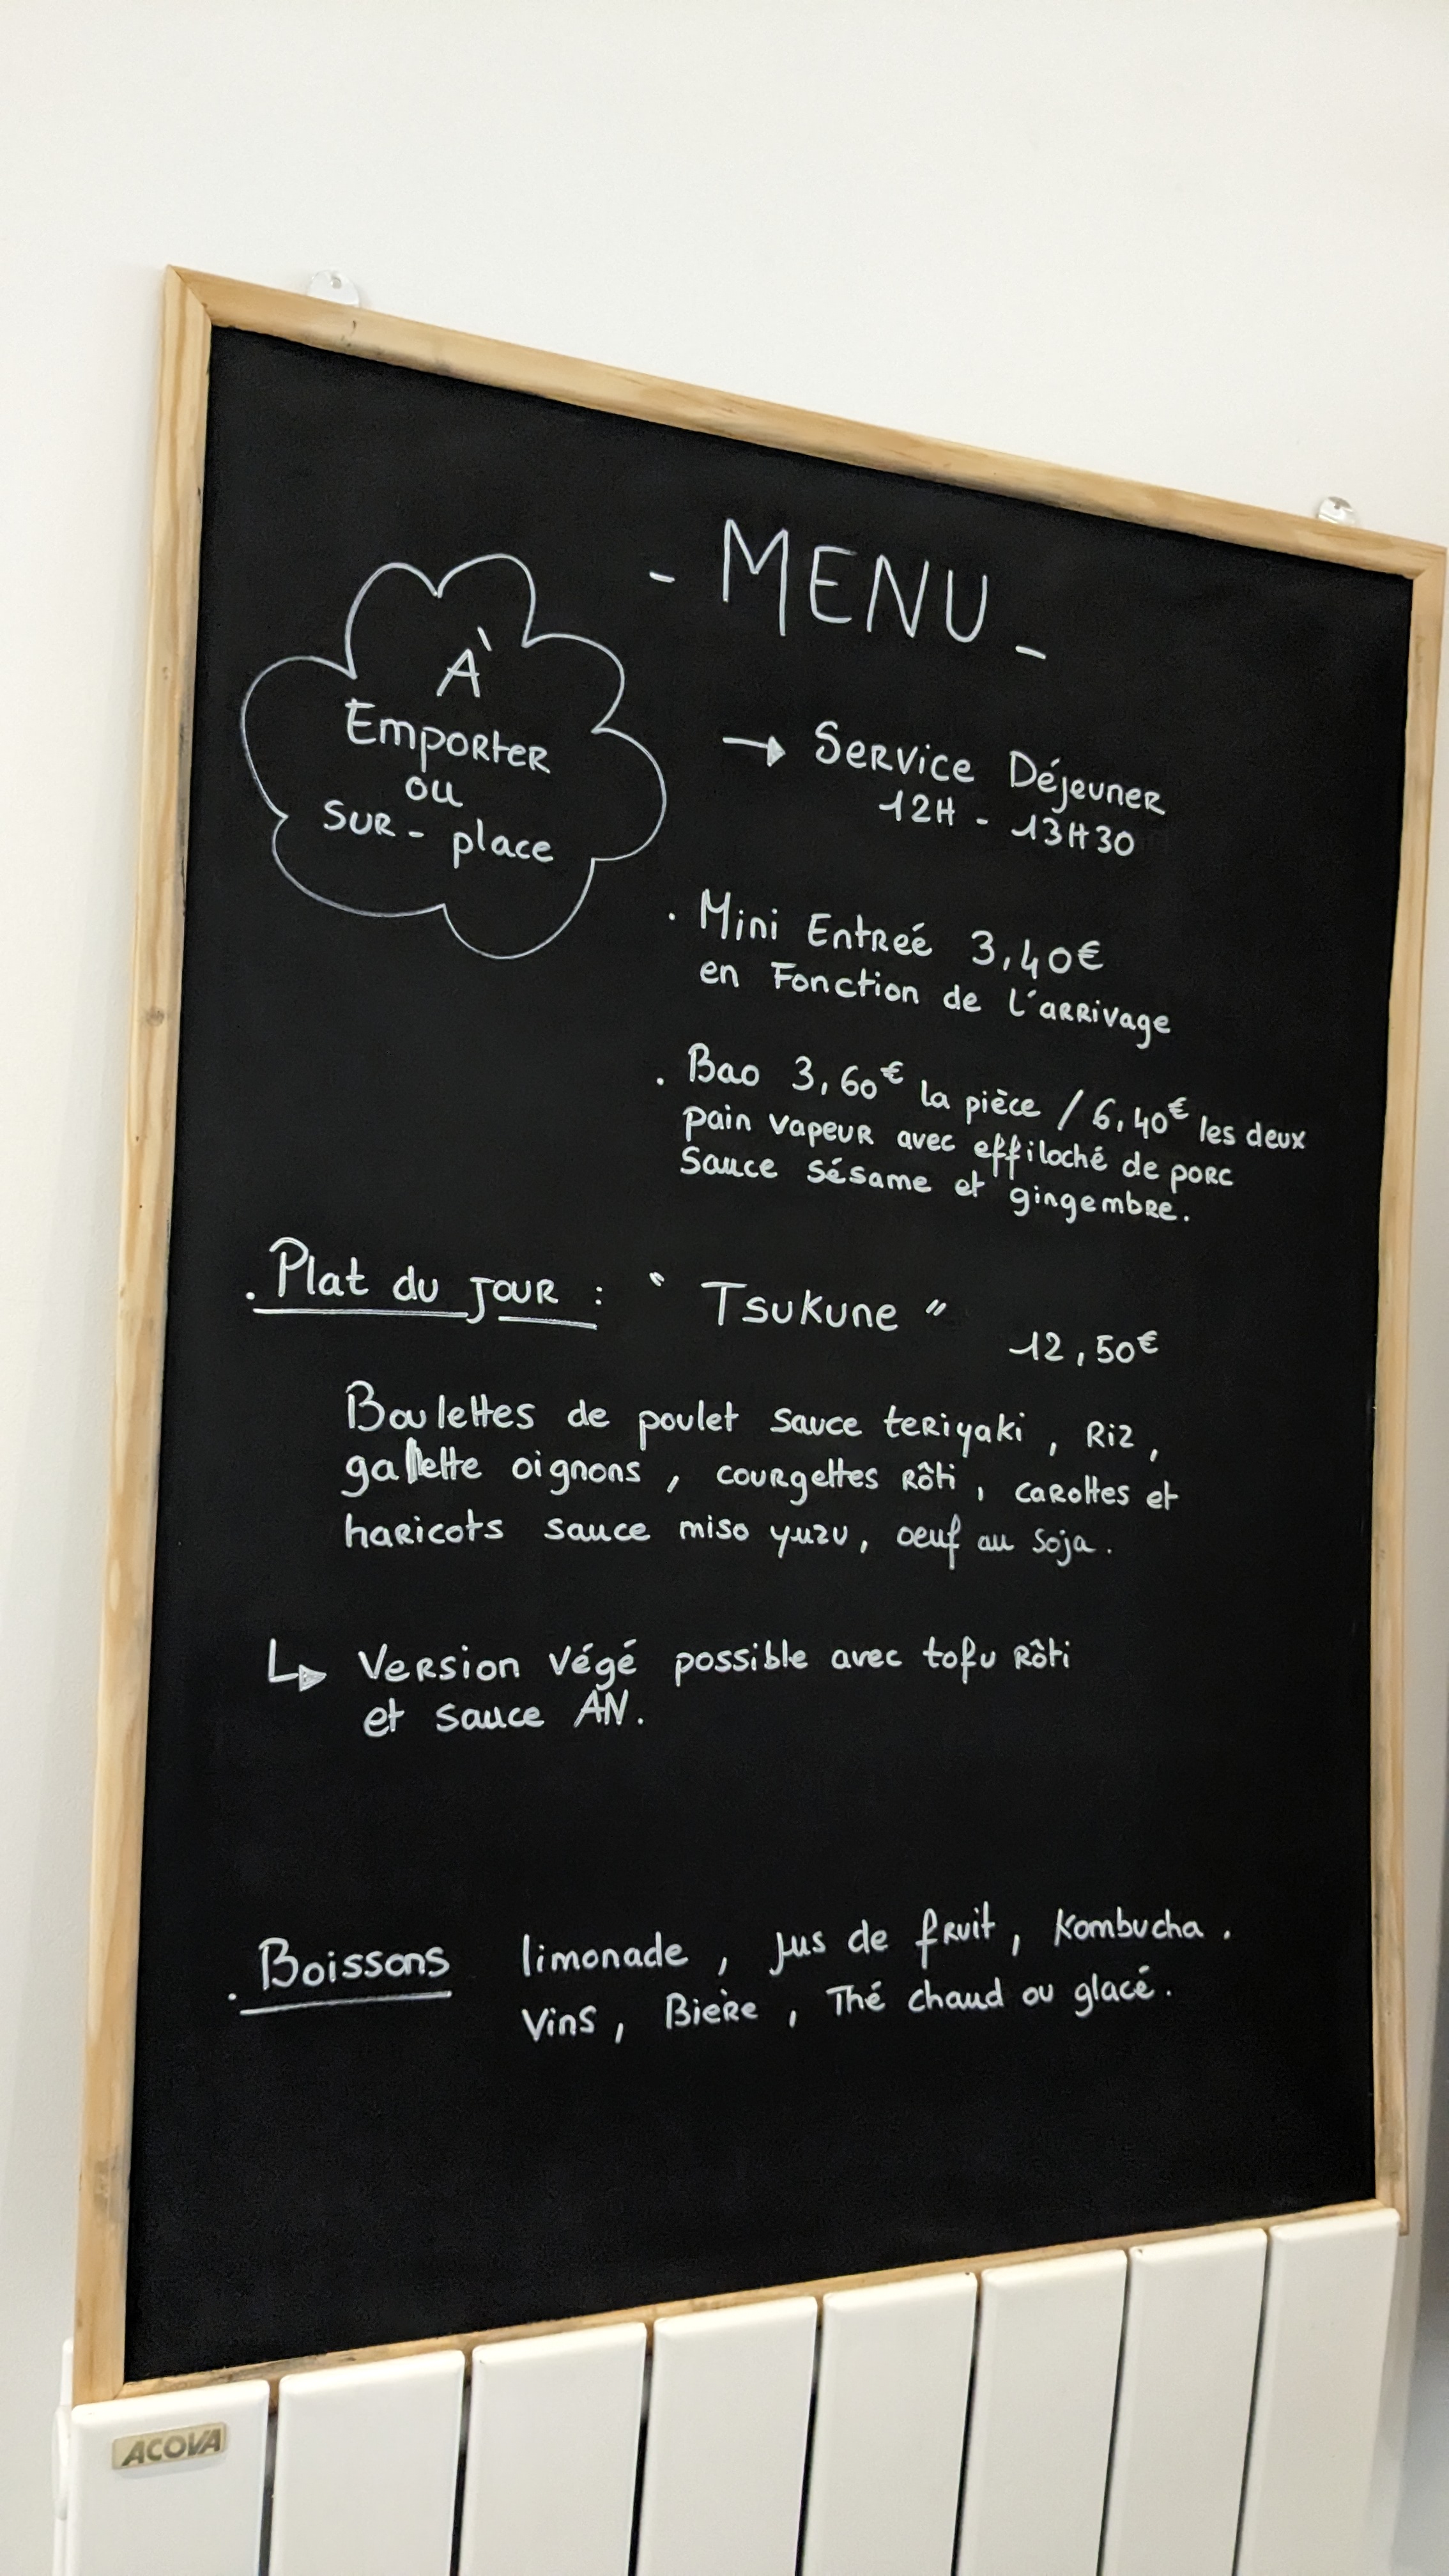 - MENU -
À
Emporter
ou
sur-place
→ Service Déjeuner
12H - 13H30
. Mini Entreé 3,40€
en Fonction de l'arrivage
. Bao 3,60€ la pièce / 6,40€ les deux
pain vapeur avec effiloché de porc
Sauce Sésame et gingembre.
. Plat du jour : " Tsukune " 12,50€
Boulettes de poulet sauce teriyaki, Riz,
gallette oignons, courgettes rôti, carottes et
haricots sauce miso yuzu, oeuf au soja.
↳ Version végé possible avec tofu rôti
et sauce AN.
. Boissons limonade, jus de fruit, Kombucha.
Vins, Bière, Thé chaud ou glacé.
ACOVA